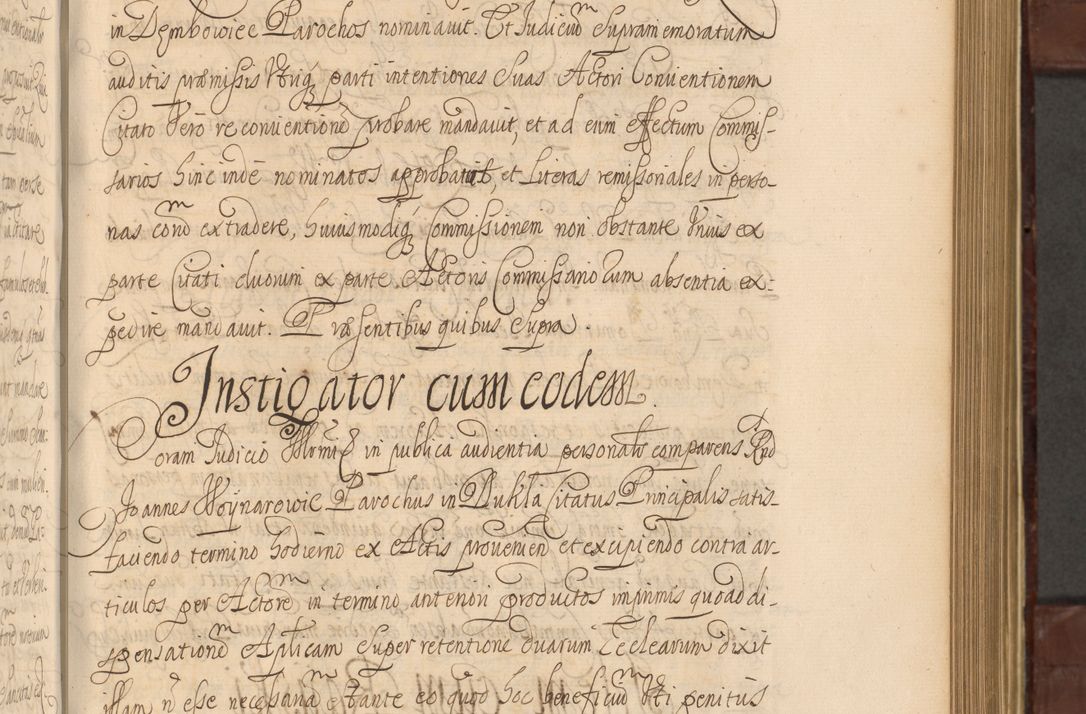 in Dembowiec Parochos nominavit. Et Judiciū supramemoratum
auditis præmissis utriq parti intentiones suas Actori Conventionem
Citato Vero reconventionē probare mandavit, et ad eum effectum Commis-
sarios hinc inde nominatos approbavit, et Literas remissoriales in perso-
nas eorū extradere, huiusmodiq Commissionem non obstante Unius ex
parte Citati duorum ex parte Actoris Commissariorum absentia ex-
pedire mandavit. Præsentibus quibus supra.
Instigator cum eodem
Coram Judicio in publica audientia personalr comparens Rnd
Joannes Woynarowic Parochus in Dukla Citatus Principalis satis-
faciendo termino hodierno ex Actis provenien et excipiendo contra ar-
ticulos per Actorē in termino anteriori productos imprimis quoad di-
spensationē Aplicam super retentione duarum Ecclearum dixit
illam n esse necessariā stante eo quod hoc beneficiū Uti penitus